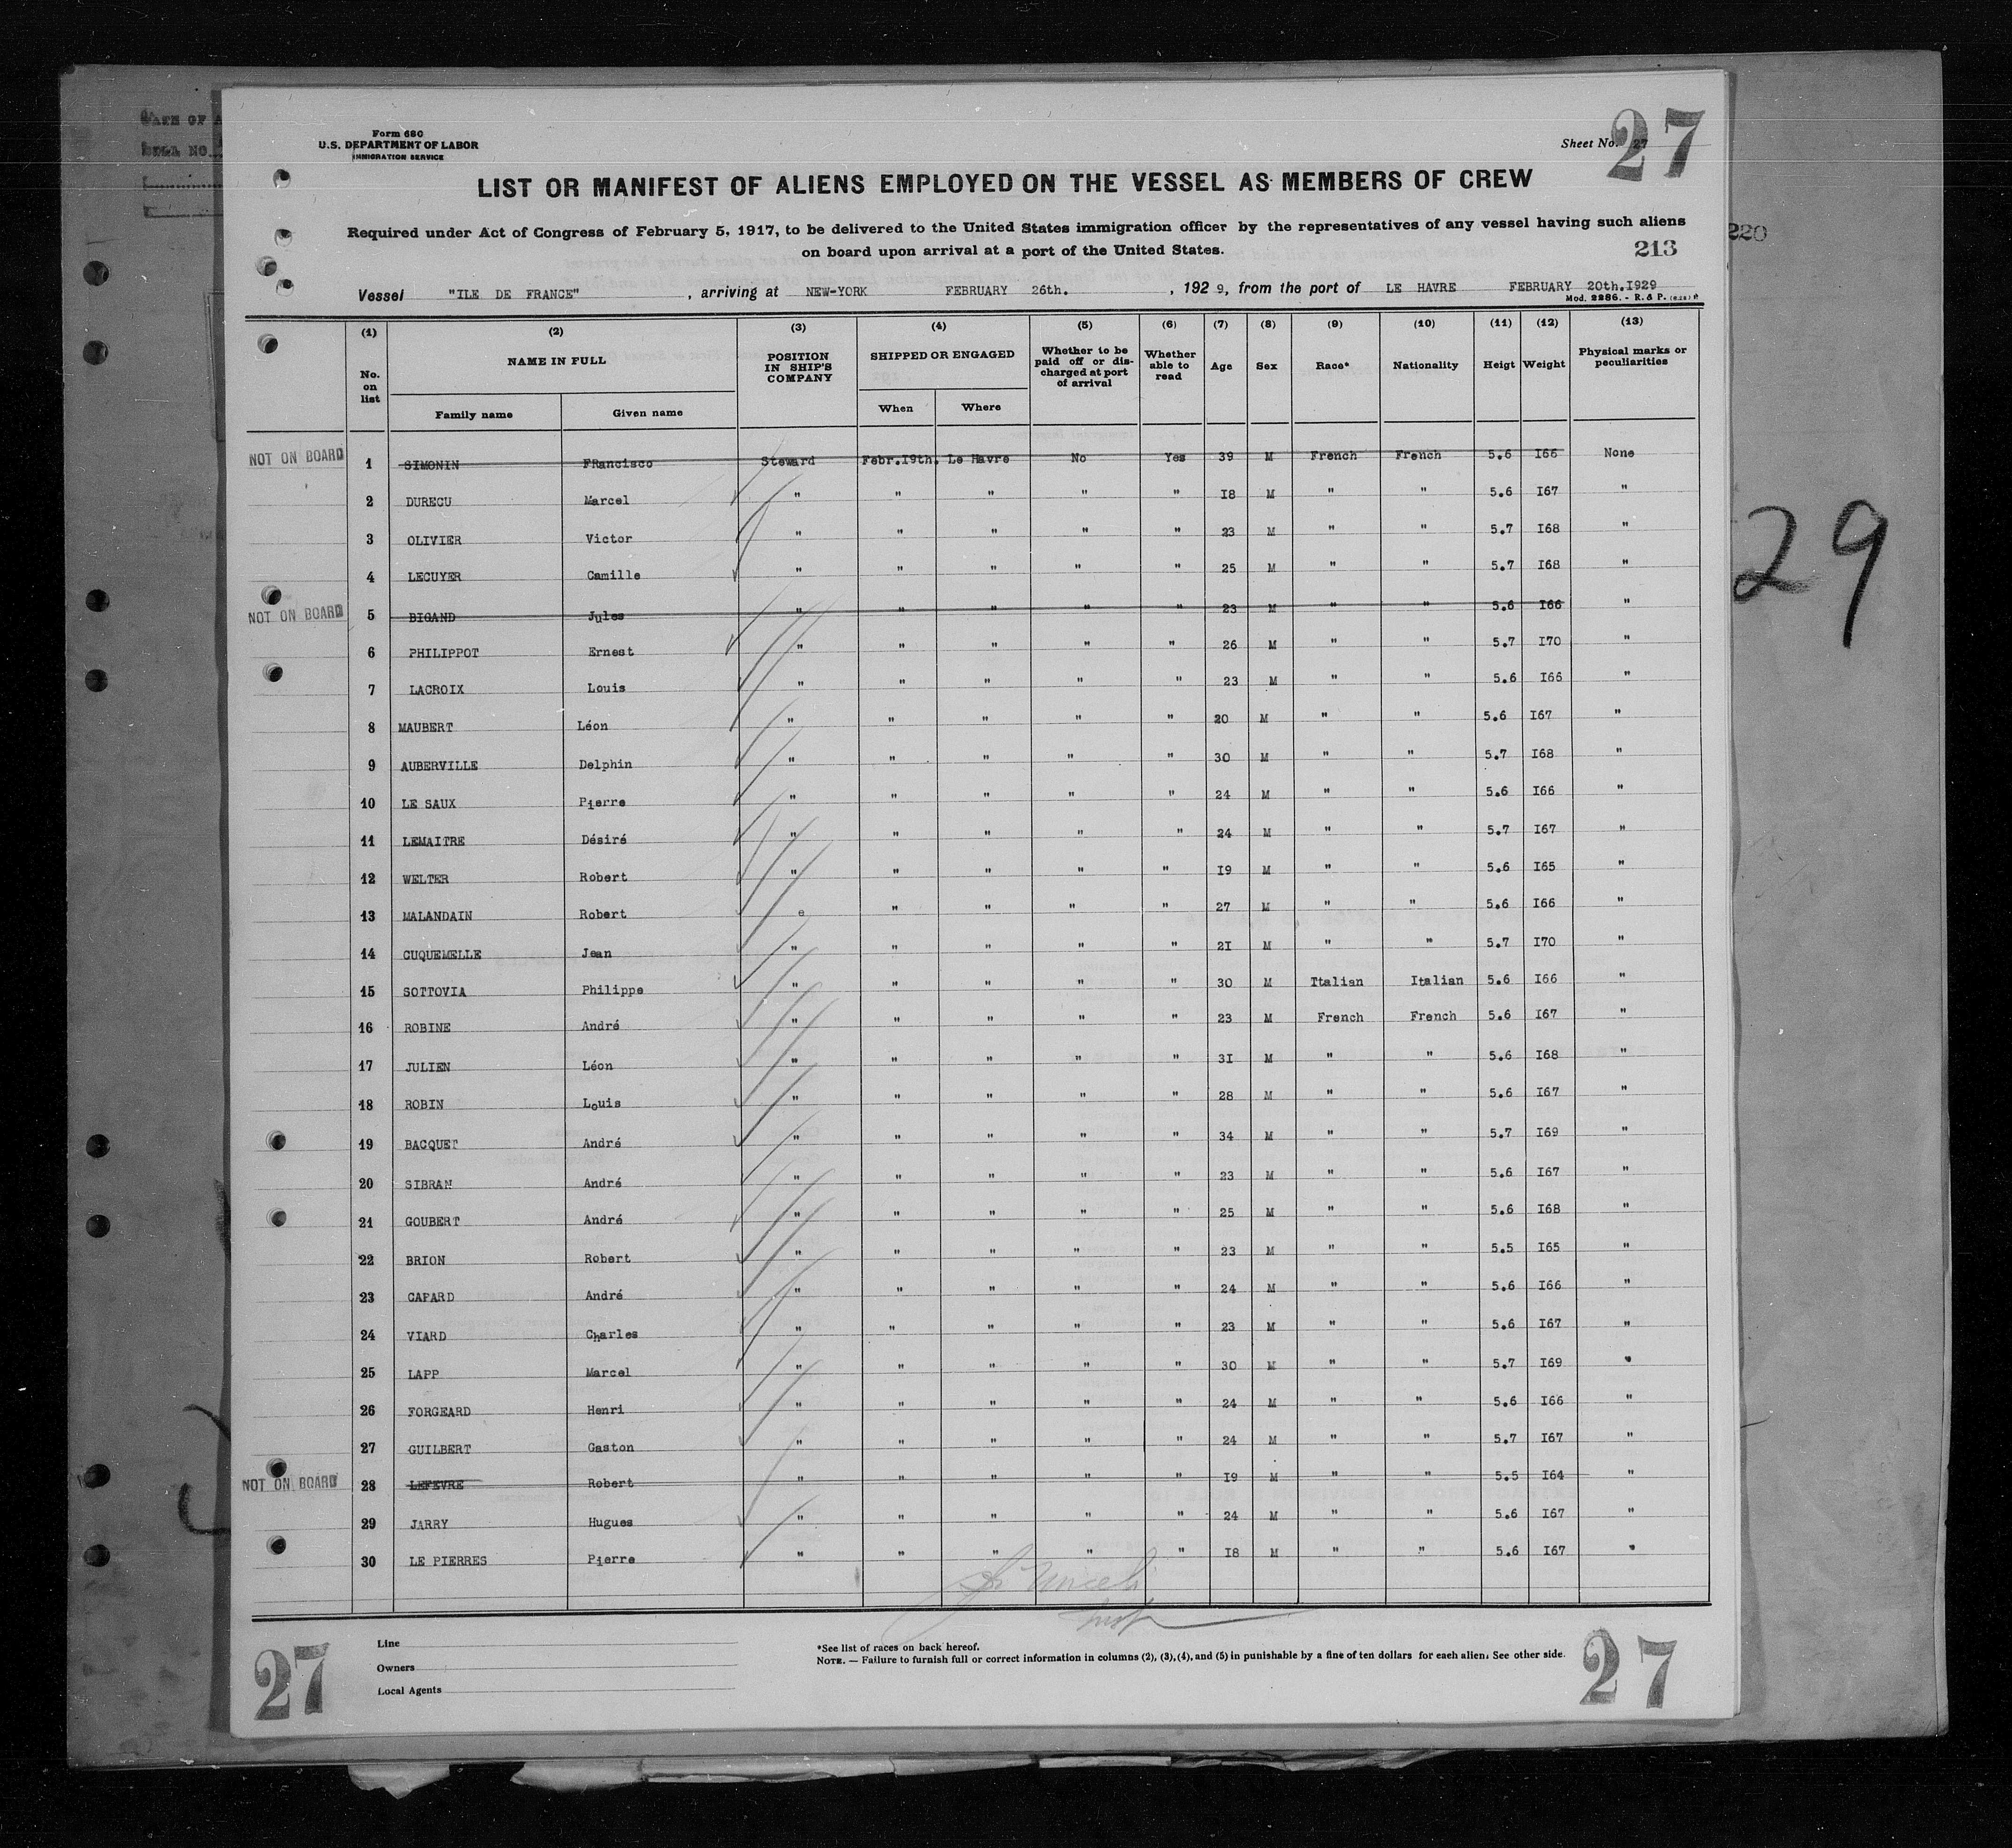 Form 680
U.S. DEPARTMENT OF LABOR
IMMIGRATION SERVICE
Sheet No. 27
27
LIST OR MANIFEST OF ALIENS EMPLOYED ON THE VESSEL AS MEMBERS OF CREW
Required under Act of Congress of February 5, 1917, to be delivered to the United States immigration officer by the representatives of any vessel having such aliens
on board upon arrival at a port of the United States.
213
220
Vessel "ILE DE FRANCE", arriving at NEW-YORK FEBRUARY 26th., 1929, from the port of LE HAVRE FEBRUARY 20th.I929
Mod. 2286. - R. & P.
(1) (2) (3) (4) (5) (6) (7) (8) (9) (10) (11) (12) (13)
No. on list NAME IN FULL Family name Given name POSITION IN SHIP'S COMPANY SHIPPED OR ENGAGED When Where Whether to be paid off or discharged at port of arrival Whether able to read Age Sex Race* Nationality Heigt Weight Physical marks or peculiarities
NOT ON BOARD 1 SIMONIN FRancisco Steward Febr.I9th. Le Havre No Yes 39 M French French 5.6 I66 None
2 DURECU Marcel " " " " " I8 M " " 5.6 I67 "
3 OLIVIER Victor " " " " " 23 M " " 5.7 I68 "
4 LECUYER Camille " " " " " 25 M " " 5.7 I68 "
NOT ON BOARD 5 BIGAND Jules " " " " " 23 M " " 5.6 I66 "
6 PHILIPPOT Ernest " " " " " 26 M " " 5.7 I70 "
7 LACROIX Louis " " " " " 23 M " " 5.6 I66 "
8 MAUBERT Léon " " " " " 20 M " " 5.6 I67 "
9 AUBERVILLE Delphin " " " " " 30 M " " 5.7 I68 "
10 LE SAUX Pierre " " " " " 24 M " " 5.6 I66 "
11 LEMAITRE Désiré " " " " " 24 M " " 5.7 I67 "
12 WELTER Robert " " " " " I9 M " " 5.6 I65 "
13 MALANDAIN Robert e " " " " 27 M " " 5.6 I66 "
14 CUQUEMELLE Jean " " " " " 2I M " " 5.7 I70 "
15 SOTTOVIA Philippe " " " " " 30 M Ttalian Italian 5.6 I66 "
16 ROBINE André " " " " " 23 M French French 5.6 I67 "
17 JULIEN Léon " " " " " 3I M " " 5.6 I68 "
18 ROBIN Louis " " " " " 28 M " " 5.6 I67 "
19 BACQUET André " " " " " 34 M " " 5.7 I69 "
20 SIBRAN André " " " " " 23 M " " 5.6 I67 "
21 GOUBERT André " " " " " 25 M " " 5.6 I68 "
22 BRION Robert " " " " " 23 M " " 5.5 I65 "
23 CAPARD André " " " " " 24 M " " 5.6 I66 "
24 VIARD Charles " " " " " 23 M " " 5.6 I67 "
25 LAPP Marcel " " " " " 30 M " " 5.7 I69 "
26 FORGEARD Henri " " " " " 24 M " " 5.6 I66 "
27 GUILBERT Gaston " " " " " 24 M " " 5.7 I67 "
NOT ON BOARD 28 LEFEVRE Robert " " " " " I9 M " " 5.5 I64 "
29 JARRY Hugues " " " " " 24 M " " 5.6 I67 "
30 LE PIERRES Pierre " " " " " I8 M " " 5.6 I67 "
29
27
Line
Owners
Local Agents
*See list of races on back hereof.
NOTE. — Failure to furnish full or correct information in columns (2), (3), (4), and (5) in punishable by a fine of ten dollars for each alien. See other side.
27